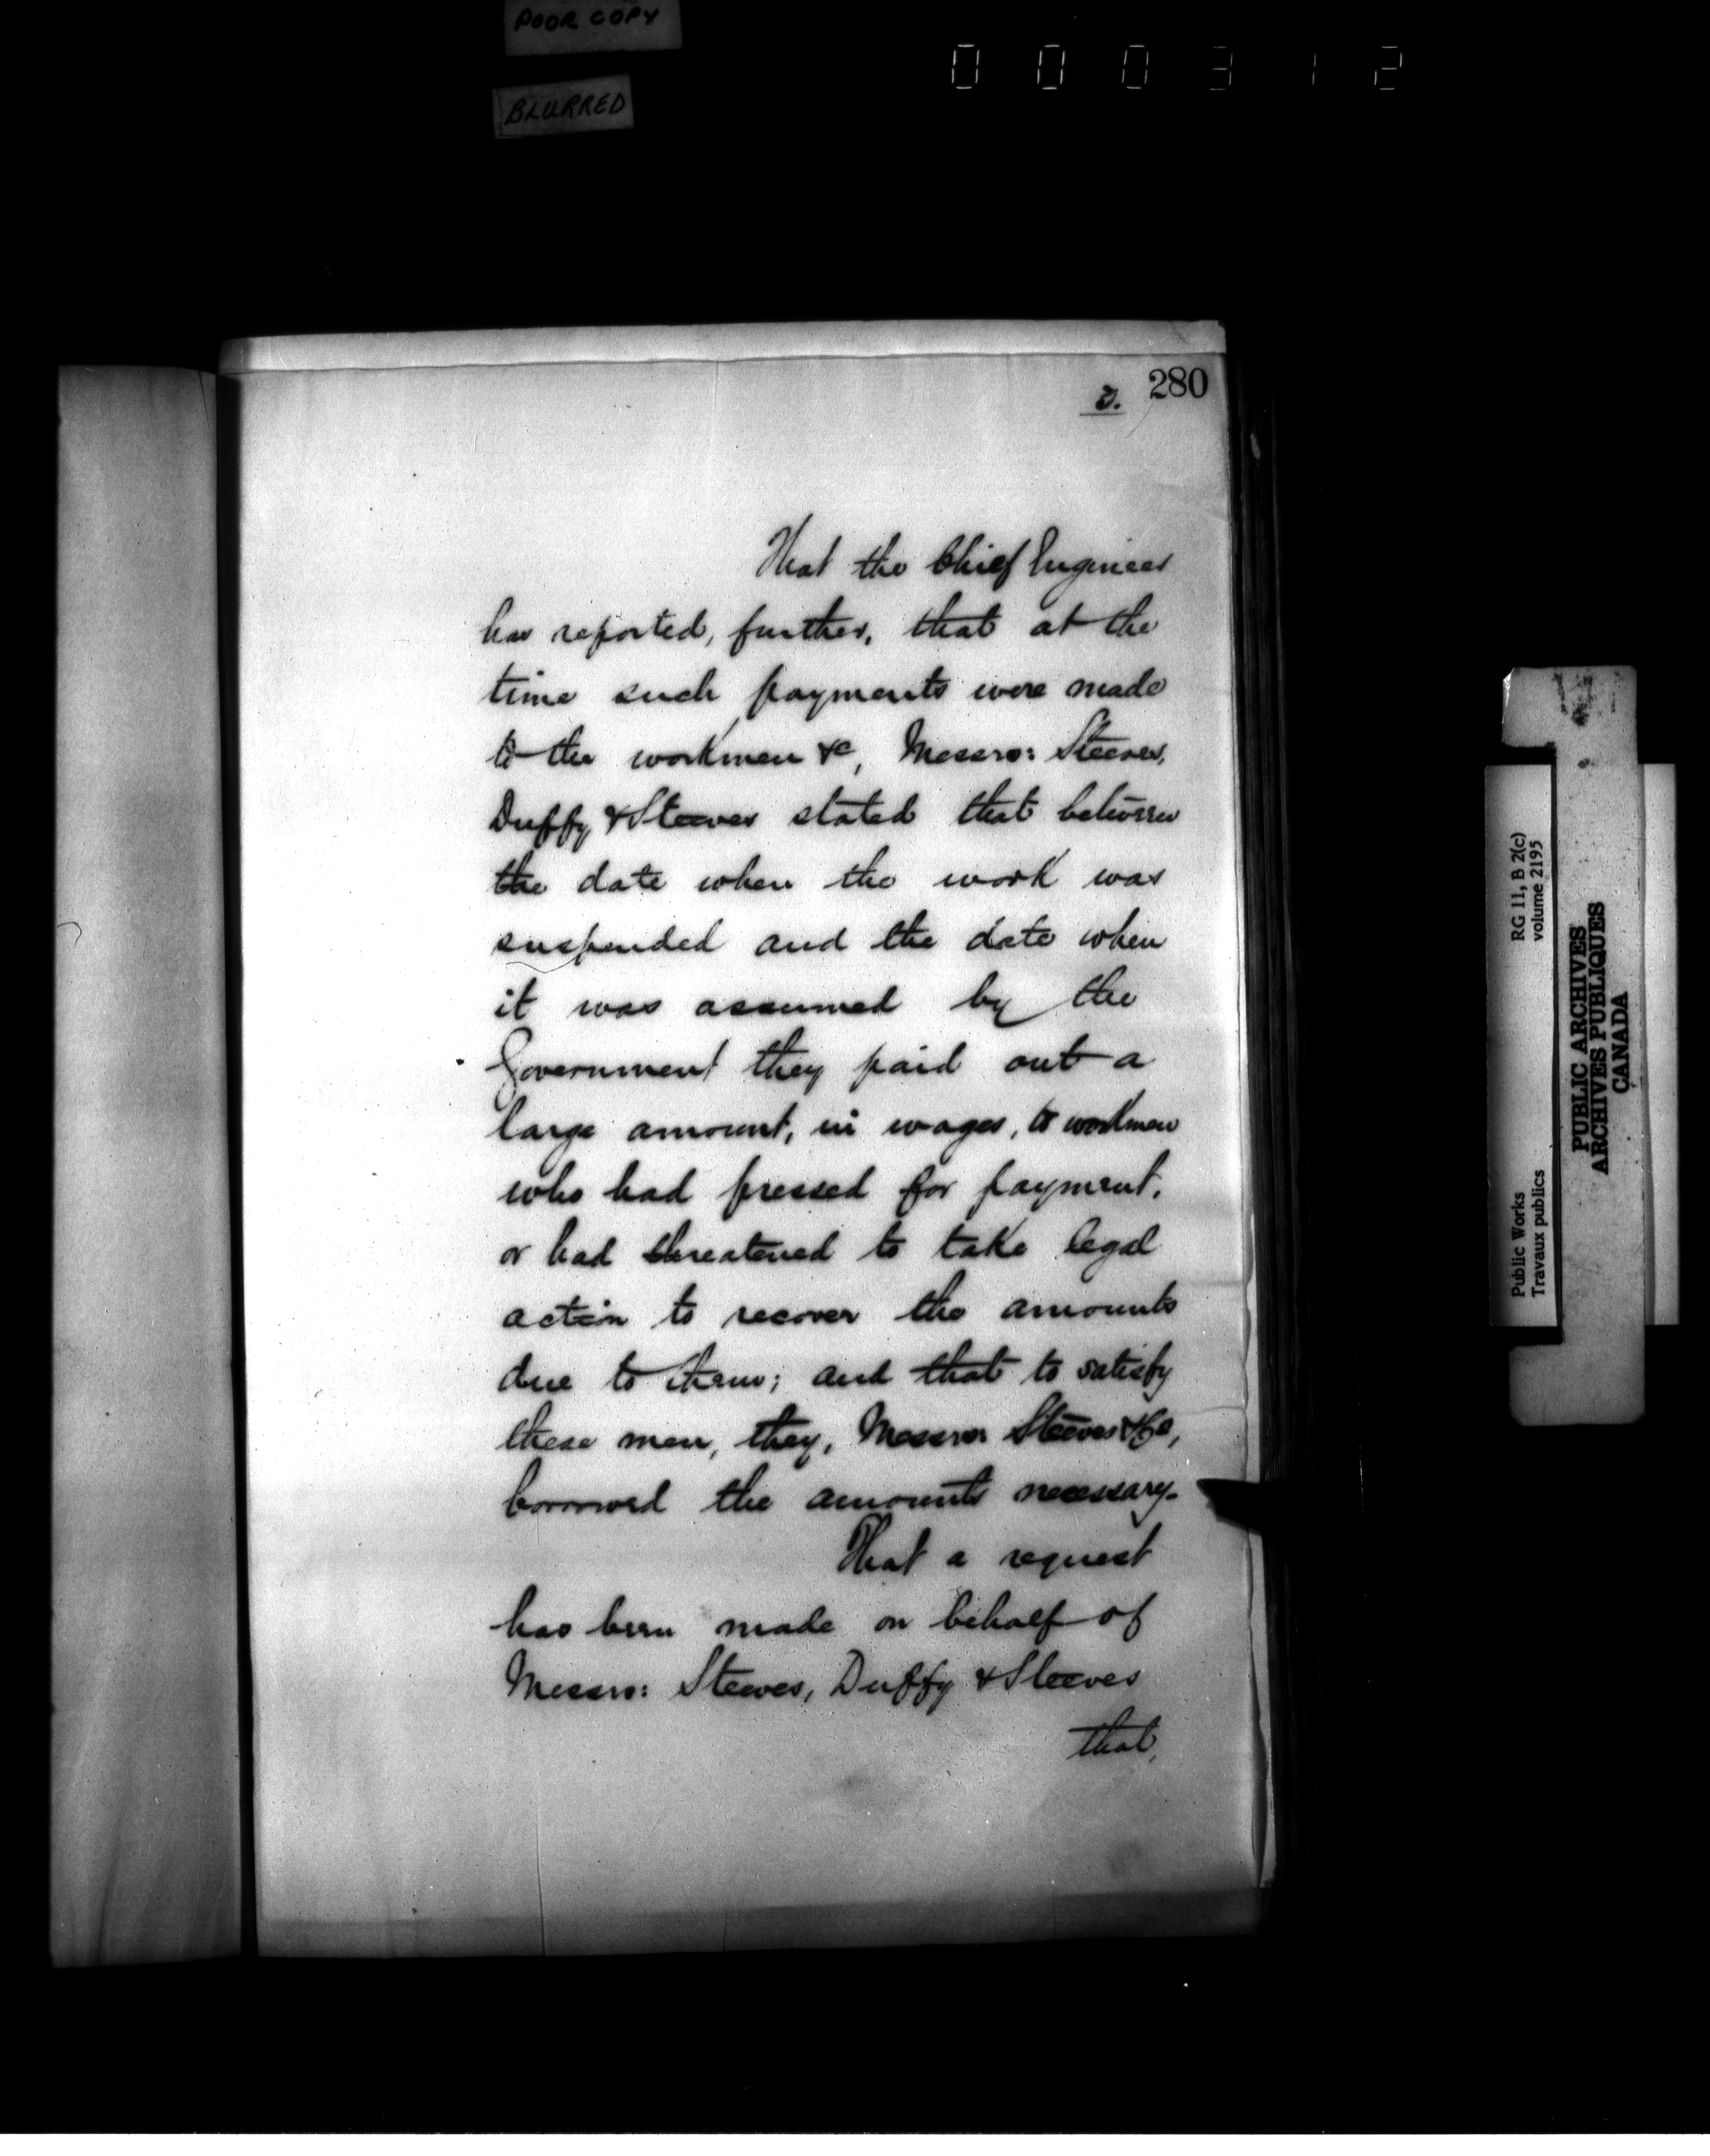 POOR COPY
BLURRED
000312
280
3.
That the Chief Engineer
has reported, further, that at the
time such payments were made
to the workmen &c, Messrs: Steeves,
Duffy & Steeves stated that between
the date when the work was
suspended and the date when
it was assumed by the
Government they paid out a
large amount, in wages, to workmen
who had pressed for payment,
or had threatened to take legal
action to recover the amounts
due to them; and that to satisfy
these men, they, Messrs Steeves & Co,
borrowed the amounts necessary.
That a request
has been made on behalf of
Messrs: Steeves, Duffy & Steeves
that,
Public Works RG 11, B 2(c)
Travaux publics volume 2195
PUBLIC ARCHIVES
ARCHIVES PUBLIQUES
CANADA